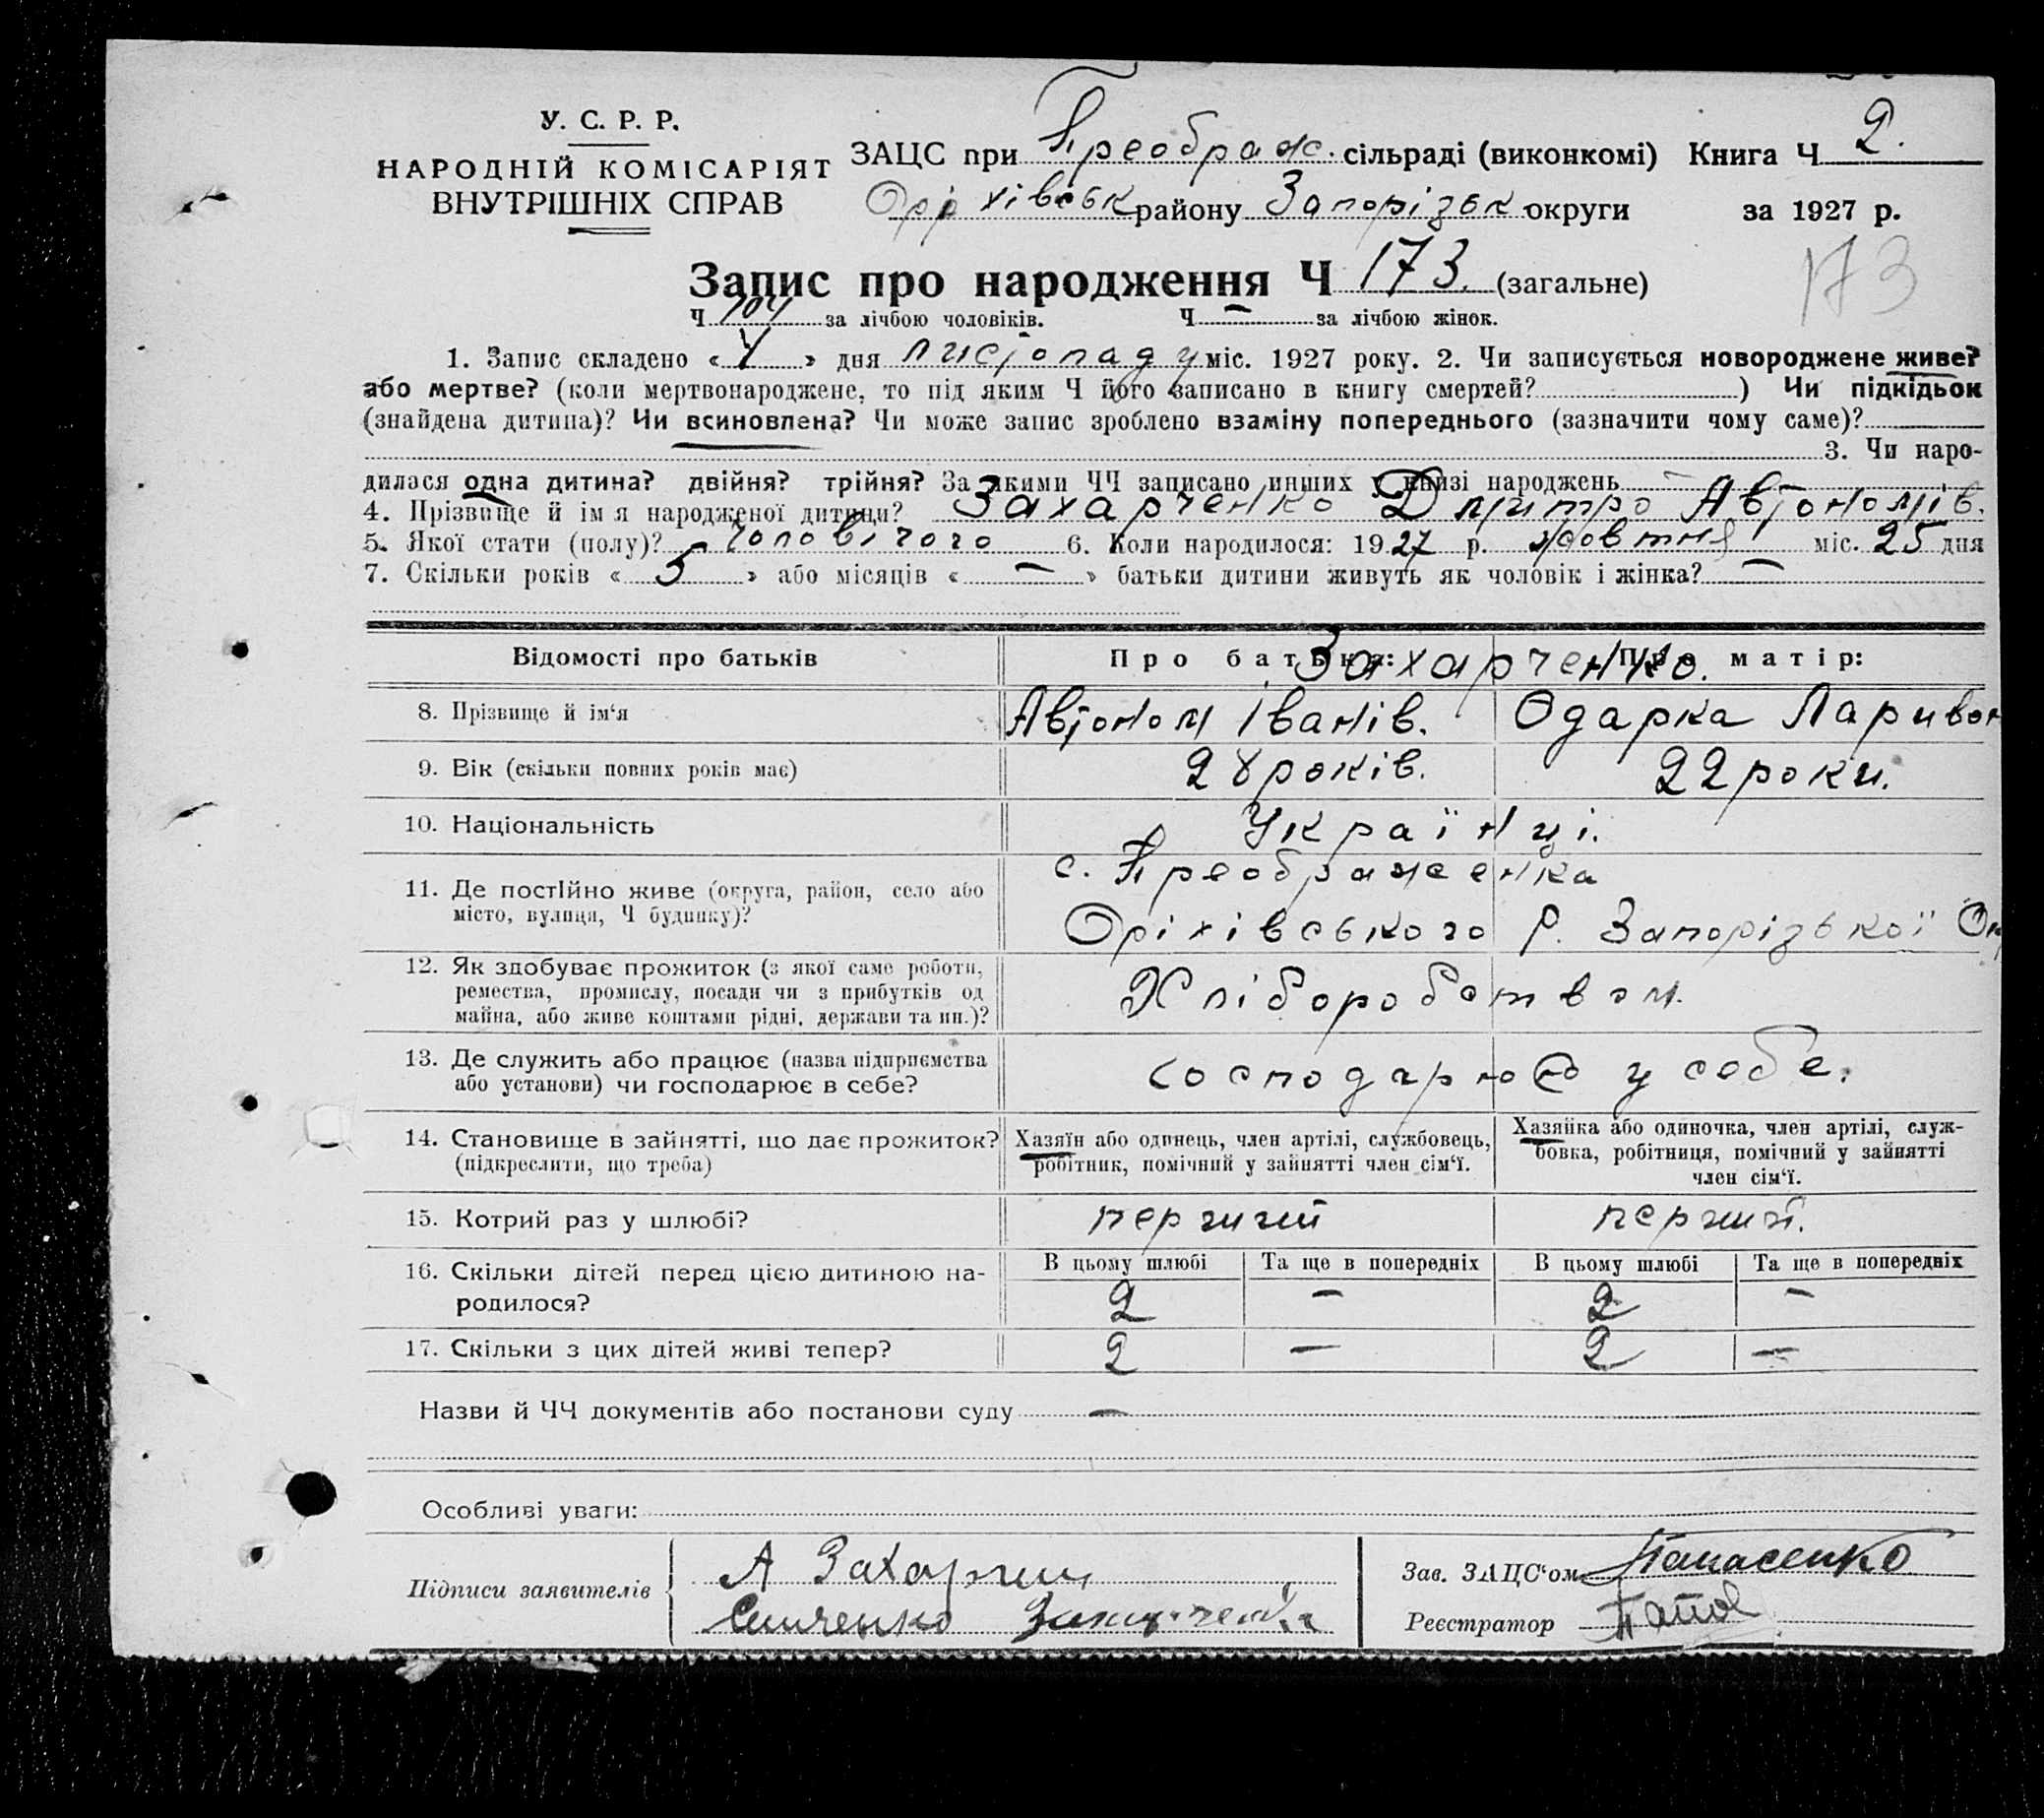 У. С. Р. Р.
НАРОДНІЙ КОМІСАРІЯТ
ВНУТРІШНІХ СПРАВ
ЗАЦС при Преображ. сільраді (виконкомі) Книга Ч 2.
Оріхівськ району Запорізьк округи за 1927 р.
Запис про народження Ч 173. (загальне)
173
Ч 104 за лічбою чоловіків. Ч — за лічбою жінок.
1. Запис складено «4» дня листопаду міс. 1927 року. 2. Чи записується новороджене живе?
або мертве? (коли мертвонароджене, то під яким Ч його записано в книгу смертей? ) Чи підкідьок
(знайдена дитина)? Чи всиновлена? Чи може запис зроблено взаміну попереднього (зазначити чому саме)?
3. Чи наро-
дилася одна дитина? двійня? трійня? За якими ЧЧ записано инших у книзі народжень
4. Прізвище й ім я народженої дитини? Захарченко Дмитро Автономів.
5. Якої стати (полу)? чоловічого 6. Коли народилося: 1927 р. жовтня міс. 25 дня
7. Скільки років « 5 » або місяців « — » батьки дитини живуть як чоловік і жінка? —
Відомості про батьків Про батька: Про матір:
Захарченко.
8. Прізвище й ім‘я Автоном Іванів. Одарка Ларивон
9. Вік (скільки повних років має) 28 років. 22 роки.
10. Національність Українці.
11. Де постІйно живе (округа, район, село або
місто, вулиця, Ч будинку)?
с. Преображенка
Оріхівського Р. Запорізької Ок
12. Як здобуває прожиток (з якої саме роботи,
ремества, промислу, посади чи з прибутків од
майна, або живе коштами рідні, держави та ин.)?
Хліборобством.
13. Де служить або працює (назва підприємства
або установи) чи господарює в себе?
Господарює у себе.
14. Становище в зайнятті, що дає прожиток?
(підкреслити, що треба)
Хазяїн або одинець, член артілі, службовець,
робітник, помічний у зайнятті член сім‘ї.
Хазяйка або одиночка, член артілі, служ-
бовка, робітниця, помічний у зайнятті
член сім‘ї.
15. Котрий раз у шлюбі? перший перший.
16. Скільки дітей перед цією дитиною на-
родилося?
В цьому шлюбі Та ще в попередніх В цьому шлюбі Та ще в попередніх
2 — 2 —
17. Скільки з цих дітей живі тепер? 2 — 2 —
Назви й ЧЧ документів або постанови суду —
Особливі уваги:
Підписи заявителів
А Захарчен
Зав. ЗАЦС‘ом Панасенко
Реєстратор